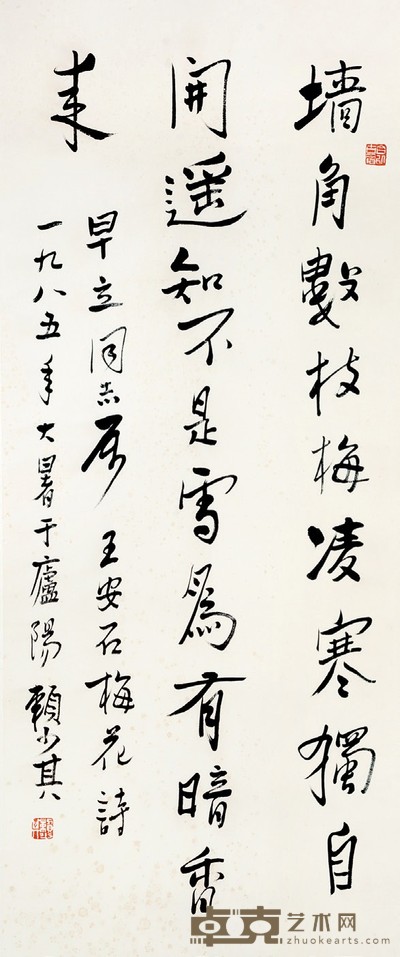 墙角數枝梅凌寒獨自
開遥知不是雪爲有暗香
来
早立同志属 王安石梅花詩
一九八五年大暑于廬陽 賴少其
卓克艺术网
zhuokearts.com